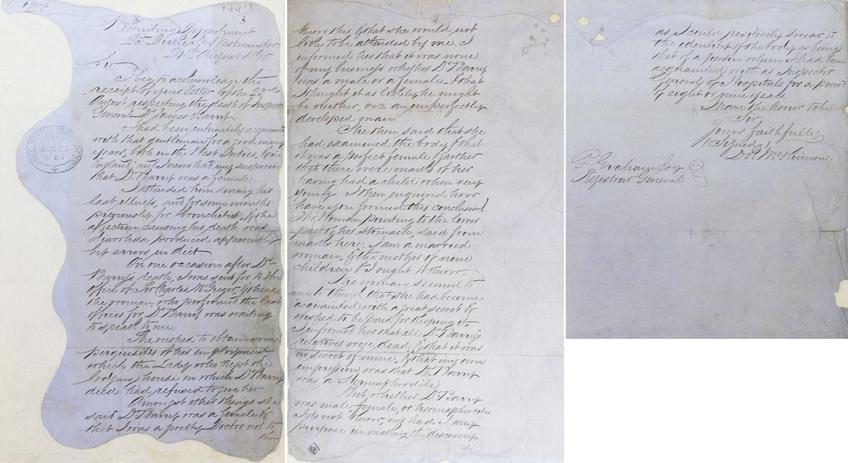 Recruiting Department
Westminster
24th August 1865
Sir
I beg to acknowledge the
receipt of your letter of the 23rd
August respecting the death of Inspector
General Dr James Barry
I had been intimately acquainted
with that gentleman for a good many
years, both in the West Indies, & in
England, and I never had any suspicion
that Dr Barry was a female.
I attended him during his
last illness, and for some months
previously for bronchitis, & the
affection causing his death was
diarrhœa produced apparently
by errors in diet
On one occasion after Dr
Barry's death, I was sent for to the
office of Sir Charles McGregor, & there
the woman who performed the last
offices for Dr Barry was waiting
to speak to me.
She wished to obtain some
perquisites of her employment
which the Lady who kept the
lodging house in which Dr Barry
died had refused to give her
Amongst other things she
said Dr Barry was a female &
that I was a pretty Doctor not to
know
know this & that she would not
like to be attended by me. I
informed her that it was none
of my business whether Dr Barry
was a male or a female, & that
I thought it as likely he might
be neither, viz an imperfectly
developed man
She then said that she
had examined the body & that
it was a perfect female & farther
that there were marks of her
having had a child when very
young. I then enquired how
have you formed this conclusion?
The woman pointing to the lower
part of her stomach, said from
marks here. I am a married
woman, & the mother of nine
children & I ought to know.
The woman seemed to
think that she had become
acquainted with a great secret &
wished to be paid for keeping it.
I informed her that all Dr Barry's
relatives were dead, & that it was
no secret of mine, & that my own
impression was that Dr Barry
was a Hermaphrodite.
But whether Dr Barry
was male, female, or hermaphrodite
I do not know, nor had I any
purpose in making the discovery
as I could positively swear to
the identity of the body as being
that of a person whom I had been
acquainted with as Inspector
General of Hospitals for a period
of eight or nine years
I have the honor to be
Sir
yours faithfully
Signed
D R McKinnon
G. Graham Esq
Registrar General